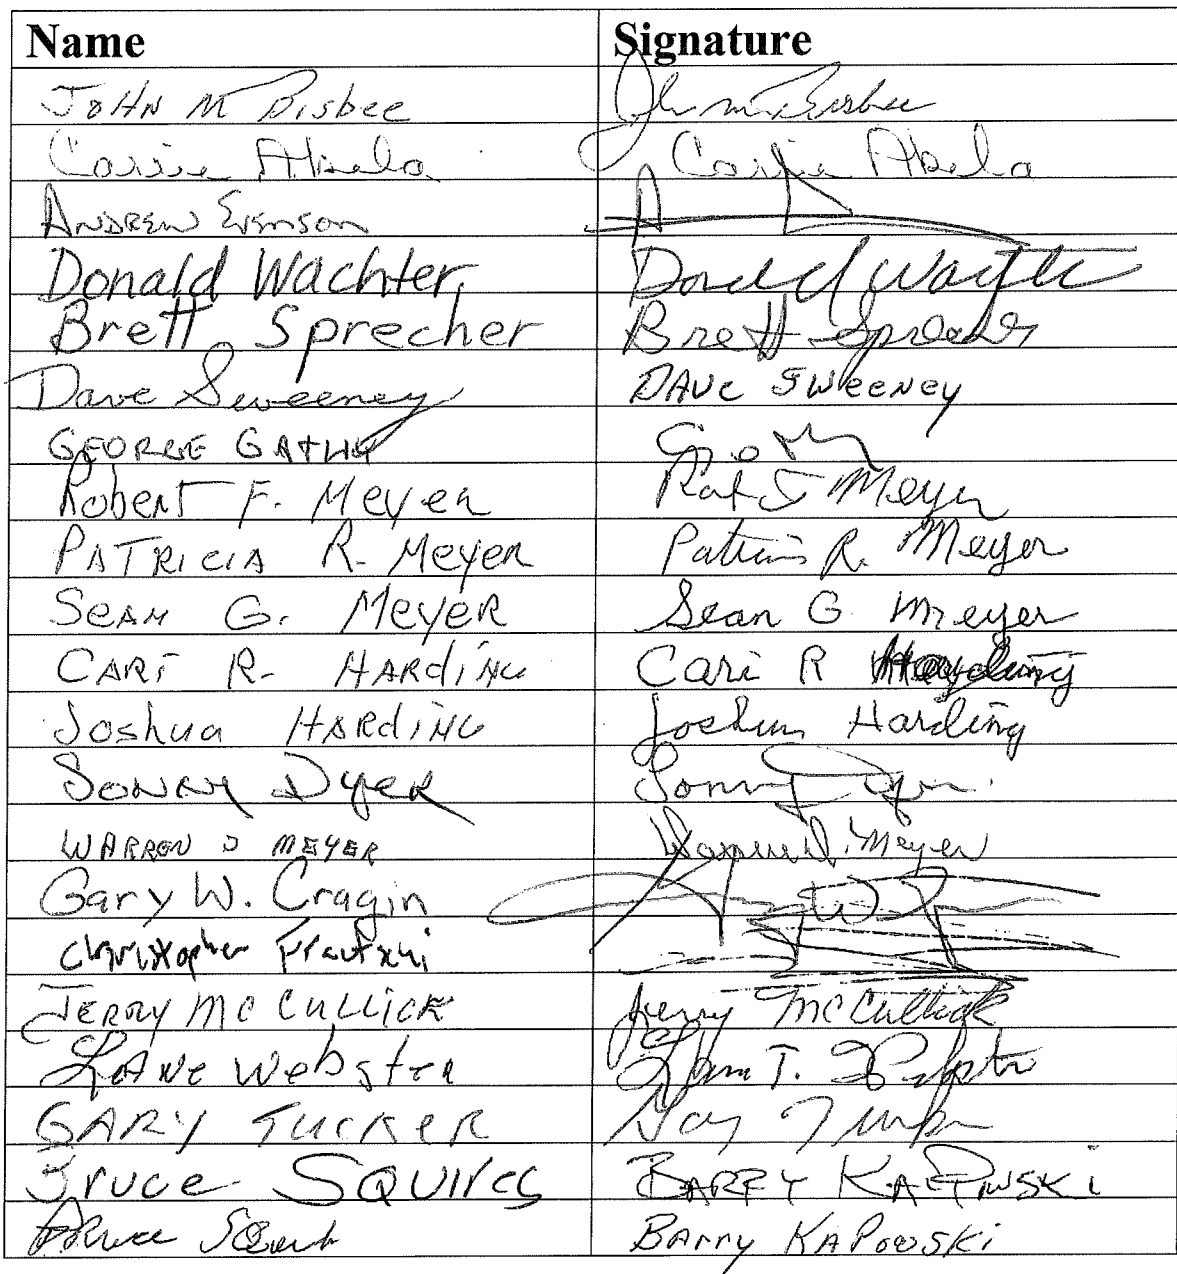 Name Signature
JOHN M Bisbee John M Bisbee
Carrie Abela Carrie Abela
ANDREW Evenson
Donald Wachter Donald Wachter
Brett Sprecher Brett Sprecher
Dave Sweeney DAVE SWEENEY
GEORGE GATHY
Robert F. Meyer Robt F Meyer
PATRICIA R. Meyer Patricia R. Meyer
SEAN G. MEYER Sean G Meyer
CARI R. HARDING Cari R Harding
Joshua HARDING Joshua Harding
SONNY DYER Sonny Dyer
WARREN D MEYER Warren D. Meyer
Gary W. Cragin
Christopher
JERRY MC CULLICK Jerry McCullick
LANE Webster Lane T. Webster
GARY TUCKER Gary Tucker
Bruce SQUIRES BARRY KAPOWSKI
Bruce Barry KAPOWSKI